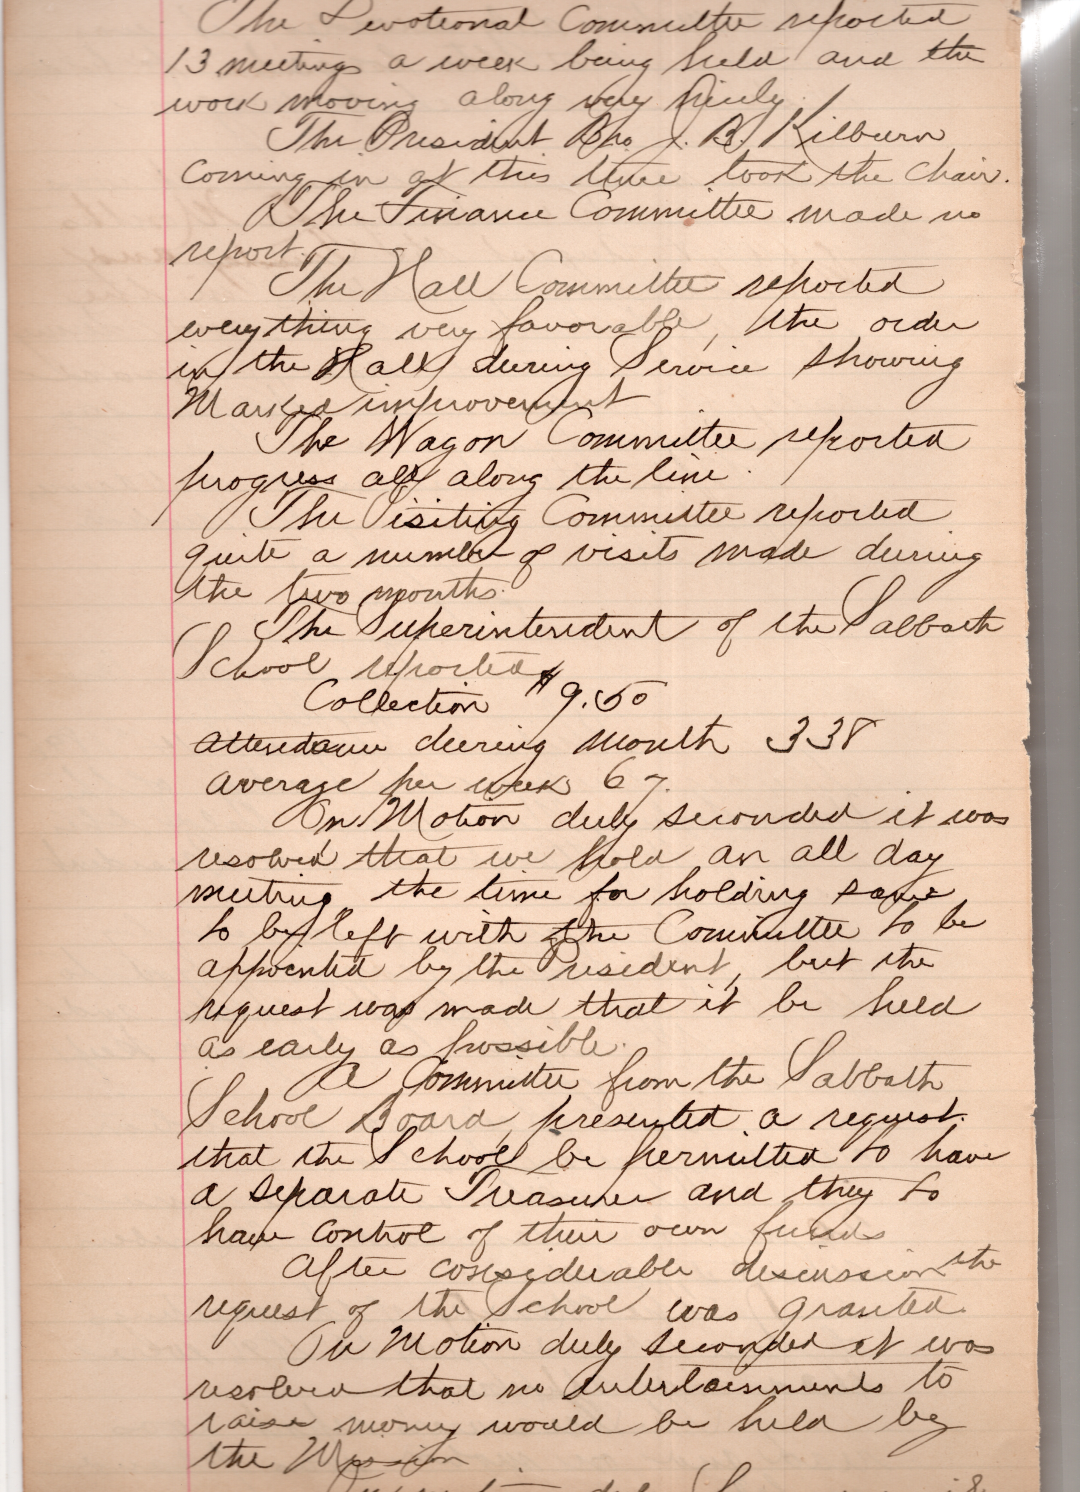 The Devotional Committee reported
13 meetings a week being held and the
work moving along very nicely.
The President Bro. J. B. Kilburn
coming in at this time took the chair.
The Finance Committee made no
report.
The Hall Committee reported
everything very favorable, the order
in the Hall during Service showing
Marked improvement
The Wagon Committee reported
progress all along the line.
The Visiting Committee reported
quite a number of visits made during
the two months.
The Superintendent of the Sabbath
School reported
Collection $9.50
Attendance during month 338
Average per week 67.
On Motion duly seconded it was
resolved that we hold an all day
meeting, the time for holding same
to be left with the Committee to be
appointed by the President, but the
request was made that it be held
as early as possible.
A Committee from the Sabbath
School Board, presented a request
that the School be permitted to have
a separate Treasurer and they to
have control of their own funds
After considerable discussion the
request of the School was granted.
On Motion duly seconded it was
resolved that no entertainments to
raise money would be held by
the Mission